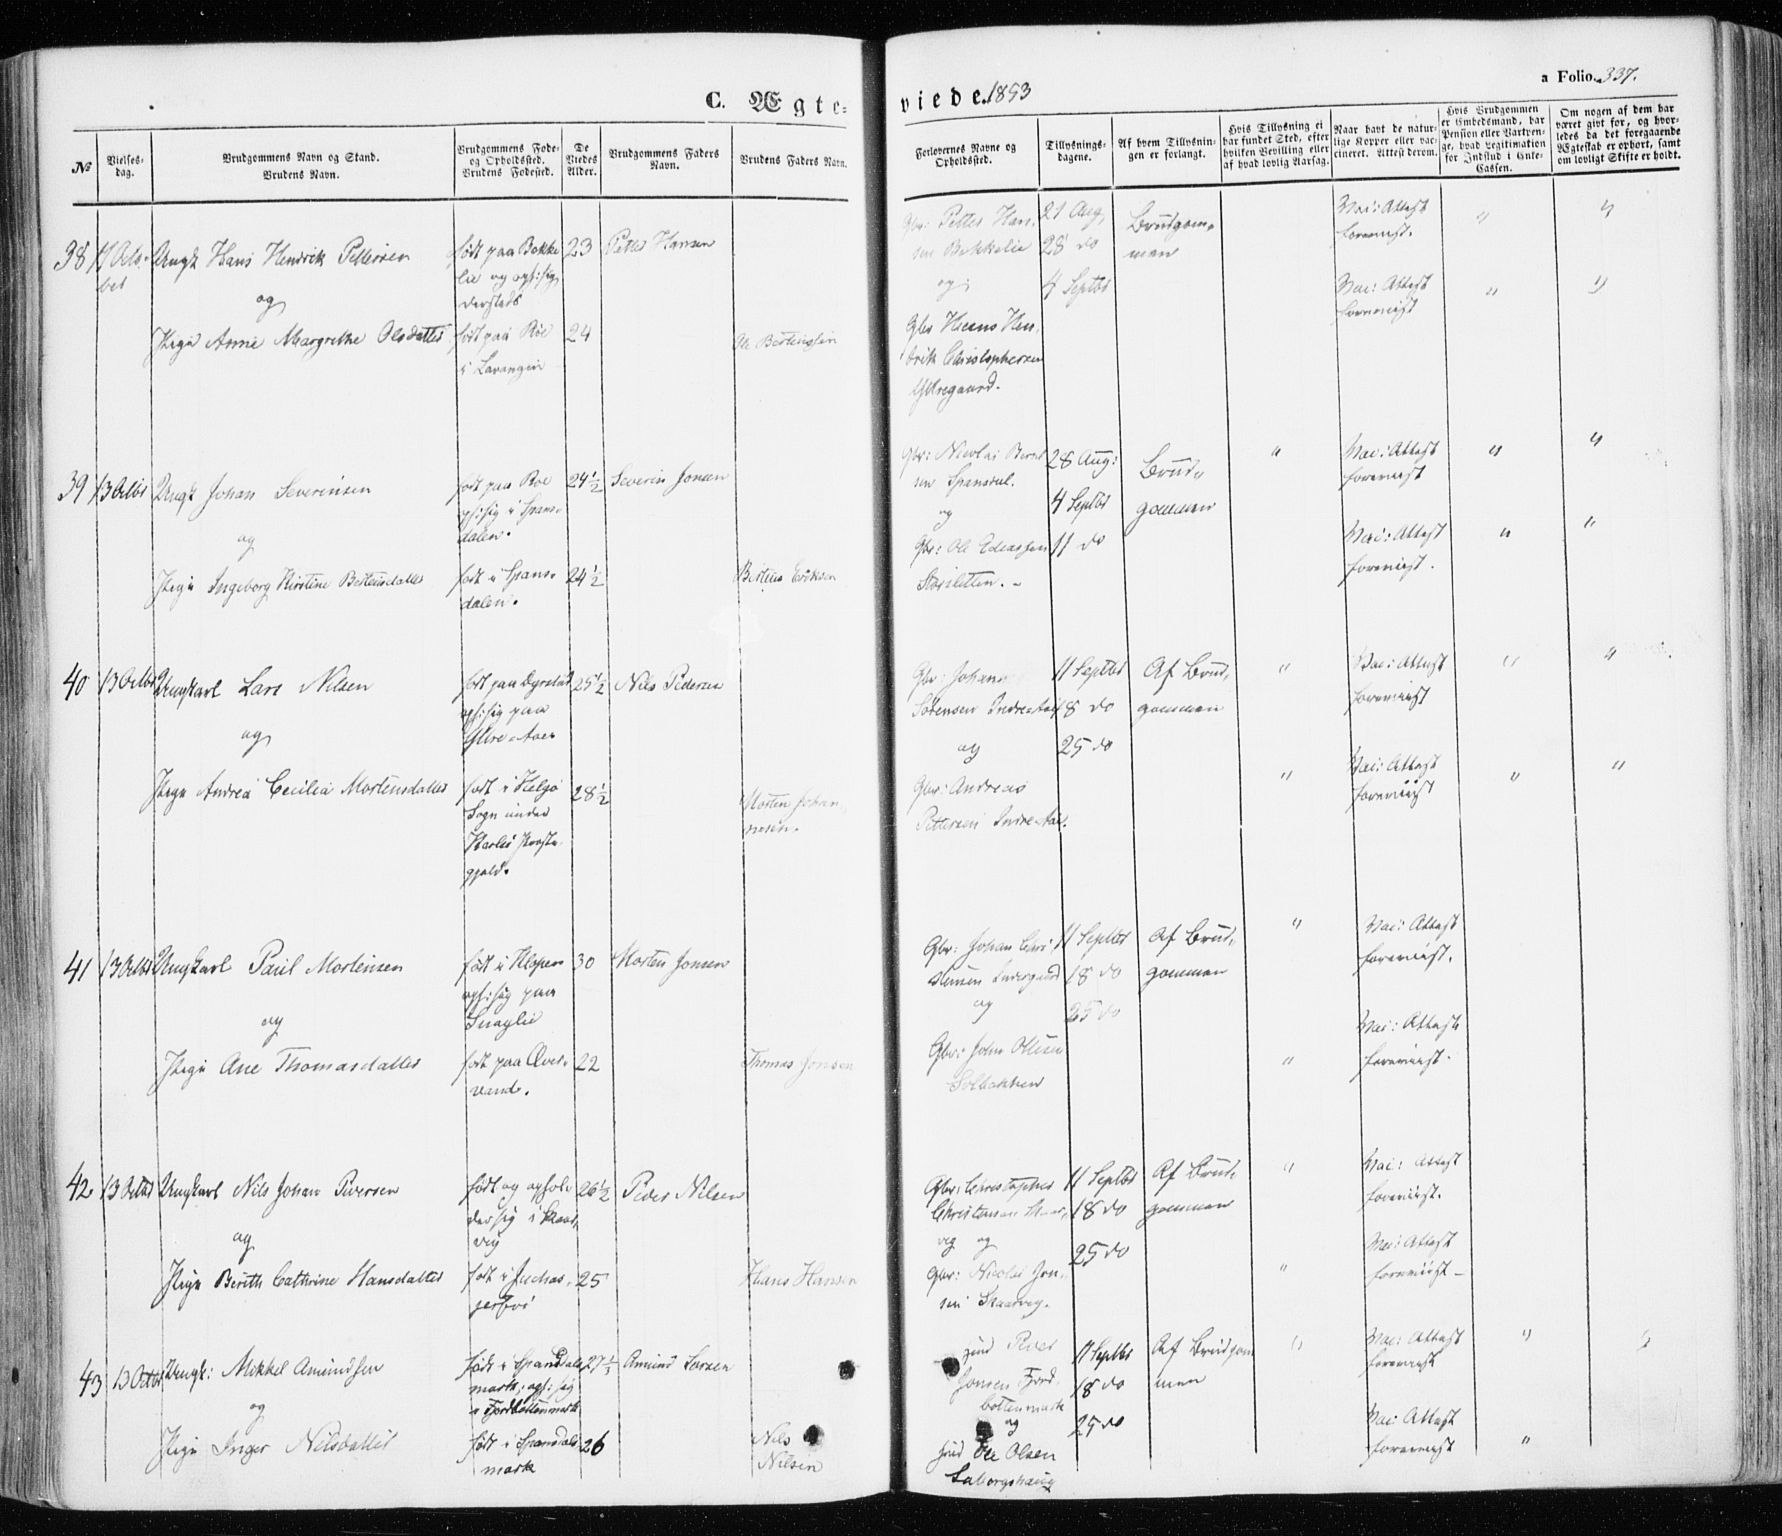 a Folio. 337.
C. Ægte-
viede. 1853
No
Vielses-
dag.
Brudgommens Navn og Stand.
Brudens Navn.
Brudgommens Føde-
og Opholdssted.
Brudens Fødested.
De
Viedes
Alder.
Brudgommens Faders
Navn.
Brudens Faders Navn.
Forlovernes Navne og
Opholdssted.
Tillysnings-
dagene.
Af hvem Tillysnin-
gen er forlangt.
Hvis Tillysning ei
har fundet Sted, efter
hvilken Bevilling eller
af hvad lovlig Aarsag.
Naar havt de natur-
lige Kopper eller vac-
cineret. Attest derom.
Hvis Brudgommen
er Embedsmand, har
Pension eller Vartpen-
ge, hvad Legitimation
for Indskud i Enke-
Cassen.
Om nogen af dem har
været gift før, og hvor-
ledes da det foregaaende
Ægteskab er ophørt, samt
om lovligt Skifte er holdt.
38
Ungk Hans Hendrik Pettersen
og
Pige Anne Margrethe Olsdatter
født paa Bekke
lie og oph: sig
dersteds
født paa Röe
i Lavangen
23
24
Petter Hansen
Ole Bertenssen
Gbr: Petter Han-
sen Bekkelie
og
Gbr Hans Hen-
drik Christophersen
Ydregaard.
21 Aug,
28 do
4 Septbr
Brudgom-
men
Vac: Attest
foreviist.
Vac: Attest
foreviist
39 13 Octbr
Ungk Johan Severinsen
og
Pige Ingeborg Kirstine Bertensdatter
født paa Röe
oph: sig i Spans-
dalen.
født i Spans-
dalen.
24½
24½
Severin Jonsen
Bertens Eriksen
Gbr: Nicolai Bernt
sen Spansdal.
og
Gbr: Ole Ediassen
Storsletten. -
28 Aug:
4 Septbr
11 do
Brud-
gommen
"
Vac: Attest
foreviist
Vac: Attest
foreviist.
40 13 Octbr
Ungkarl Lars Nilsen
og
Pige Andrea Cecilia Mortensdatter
oph: sig paa
Ydre-Aaer
født i Helgö
Sogn under
Karlsö Præste-
gjeld.
25½
28½
Nils Pedersen
Morten Johan-
nesen.
Gbr: Johan
Sörensen Indre-Aa
og
Gbr: Andreas
Pettersen Indre-Aa.
11 Septbr
18 do
25 do
Af Brud-
gommen
"
Vac: Attest
foreviist
Vac: Attest
foreviist
41 13 Octbr
Ungkarl Paul Mortensen
og
Pige Ane Thomasdatter
født i Kloven
oph: sig paa
Snaglie
født paa Över-
vand.
30
22
Morten Jonsen
Thomas Jonsen
Gbr: Johan Chri-
stensen Indergaard
og
Gbr: John Ottesen
Solbakken
11 Septbr
18 do
25 do
Af Brud-
gommen
"
Vac: Attest
foreviist.
Vac: Attest
foreviist.
42 13 Octbr
Ungkarl Nils Johan Pedersen
og
Pige Berith Cathrine Hansdatter
født og ophol-
der sig i Skaar-
vig
født i Juckas-
jerfvi
26½
25
Peder Nilsen
Hans Hansen
Gbr: Christopher
Christensen Skaar-
vig og
Gbr: Nicolai Jen-
sen Skaarvig.
11 Septbr
18 do
25 do
Af Brud-
gommen
"
Vac: Attest
foreviist.
Vac: Attest
foreviist -
43 13 Octbr
Ungk: Mikkel Amundsen
og
Pige Inger Nilsdatter
født i Spansdals
mark; oph: sig
i Fjordbottenmark
født i Spansdals
mark
27½
26
Amund Larsen
Nils
Nilsen
Jonsen Fjord
bottenmark
og
Ole Olsen
11 Septbr
18 do
25 do
Af Brudgom
men
"
Vac: Attest
foreviist
Vac: Attest
foreviist